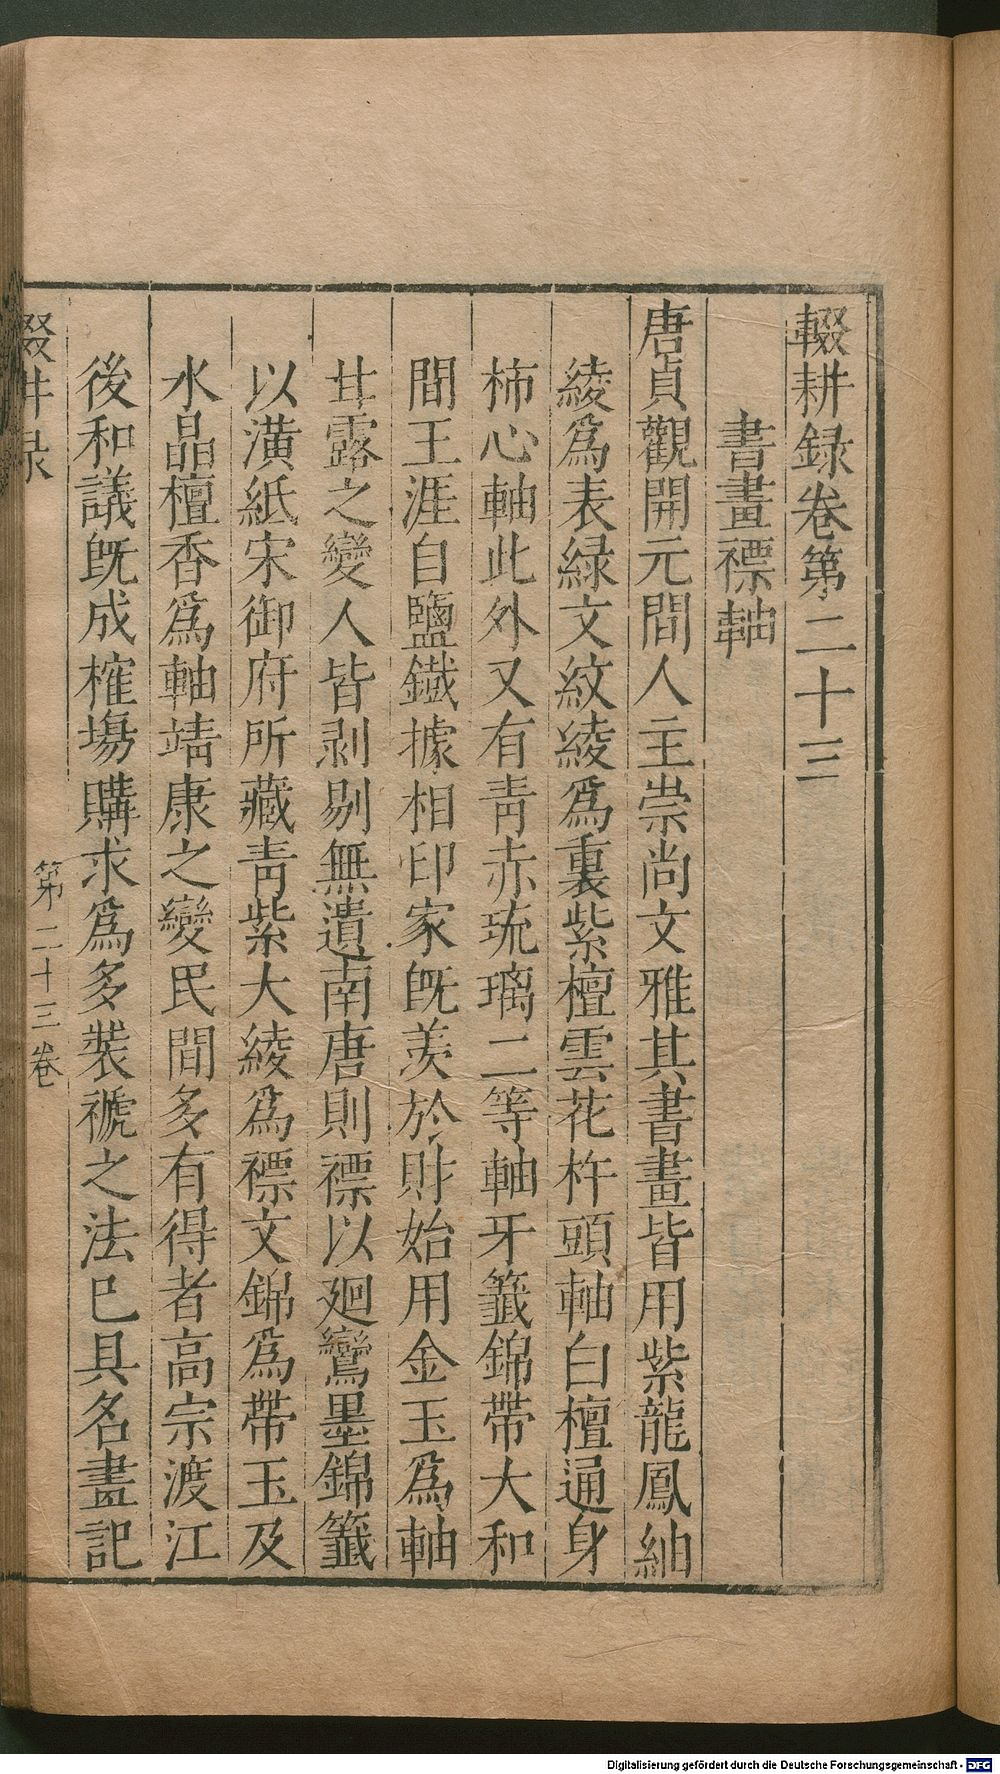 輟耕録卷第二十三
書畫褾軸
唐貞觀開元間人主崇尚文雅其書畫皆用紫龍鳳紬
綾爲表緑文紋綾爲裏紫檀雲花杵頭軸白檀通身
柿心軸此外又有靑赤琉璃二等軸牙籤錦帶大和
間王涯自鹽鐵據相印家旣羨於財始用金玉爲軸
甘露之變人皆剥剔無遺南唐則褾以廻鸞墨錦籤
以潢紙宋御府所藏靑紫大綾爲褾文錦爲帶玉及
水晶檀香爲軸靖康之變民間多有得者高宗渡江
後和議旣成榷塲購求爲多裝褫之法已具名畫記
輟耕录
第二十三卷
Digitalisierung gefördert durch die Deutsche Forschungsgemeinschaft - DFG